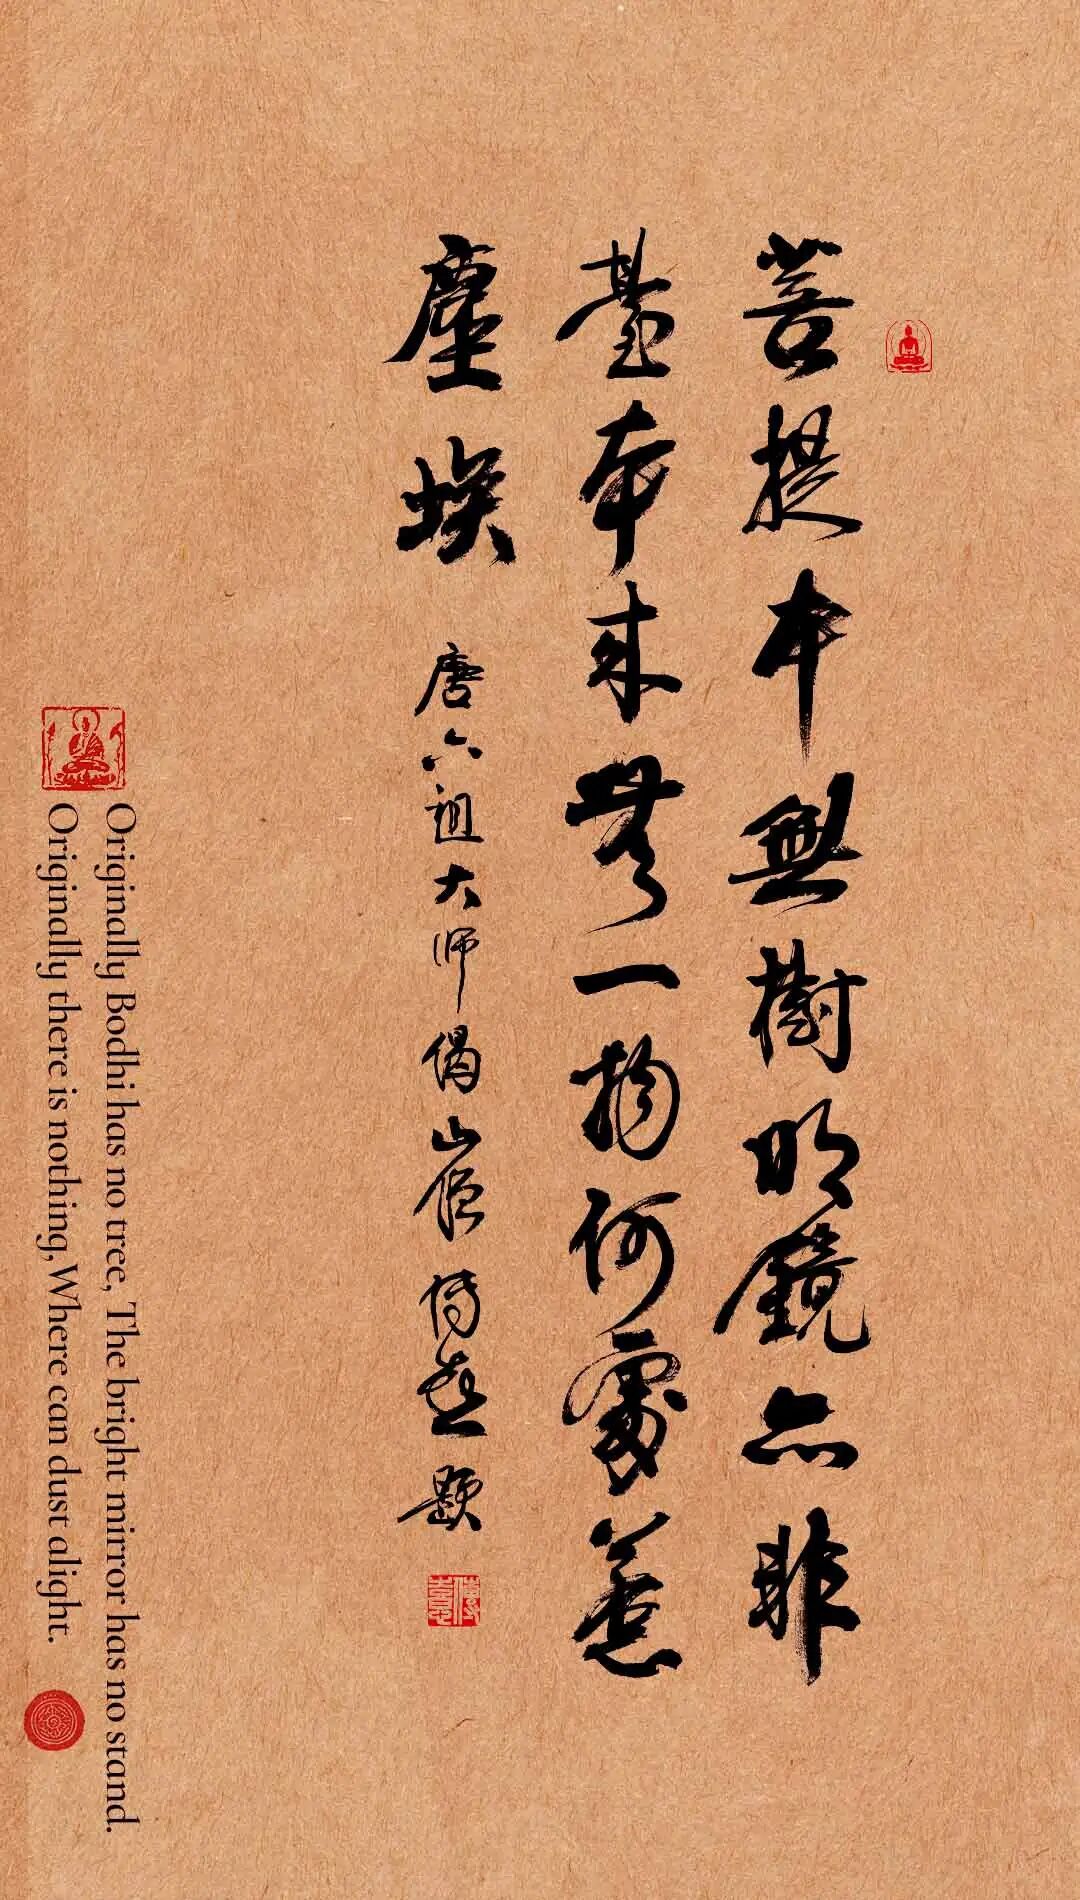 菩提本無樹明鏡亦非
臺本來無一物何處惹
塵埃
唐六祖大师偈山依傅憙題
Originally Bodhi has no tree, The bright mirror has no stand.
Originally there is nothing, Where can dust alight.